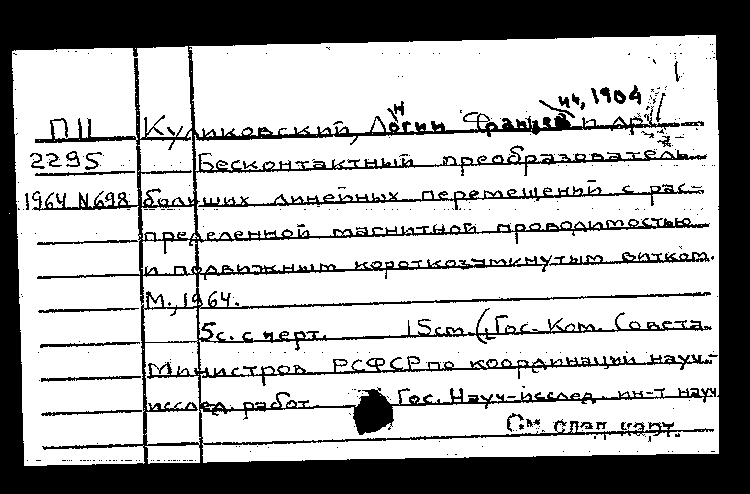 ич, 1904
П11 Куликовский, Логин Францев и др.
2295 Бесконтактный преобразователь
1964 N698 больших линейных перемещений с рас-
пределенной магнитной проводимостью
и подвижным короткозамкнутым витком.
М., 1964.
5с. с черт. 15см. (Гос. Ком. Совета
Министров РСФСР по координации науч.-
исслед. работ. Гос. Науч-исслед. ин-т науч
См. след. карт.